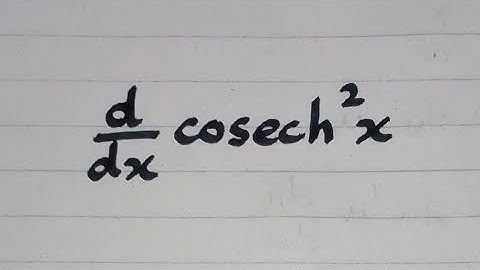 d/dx cosech²x